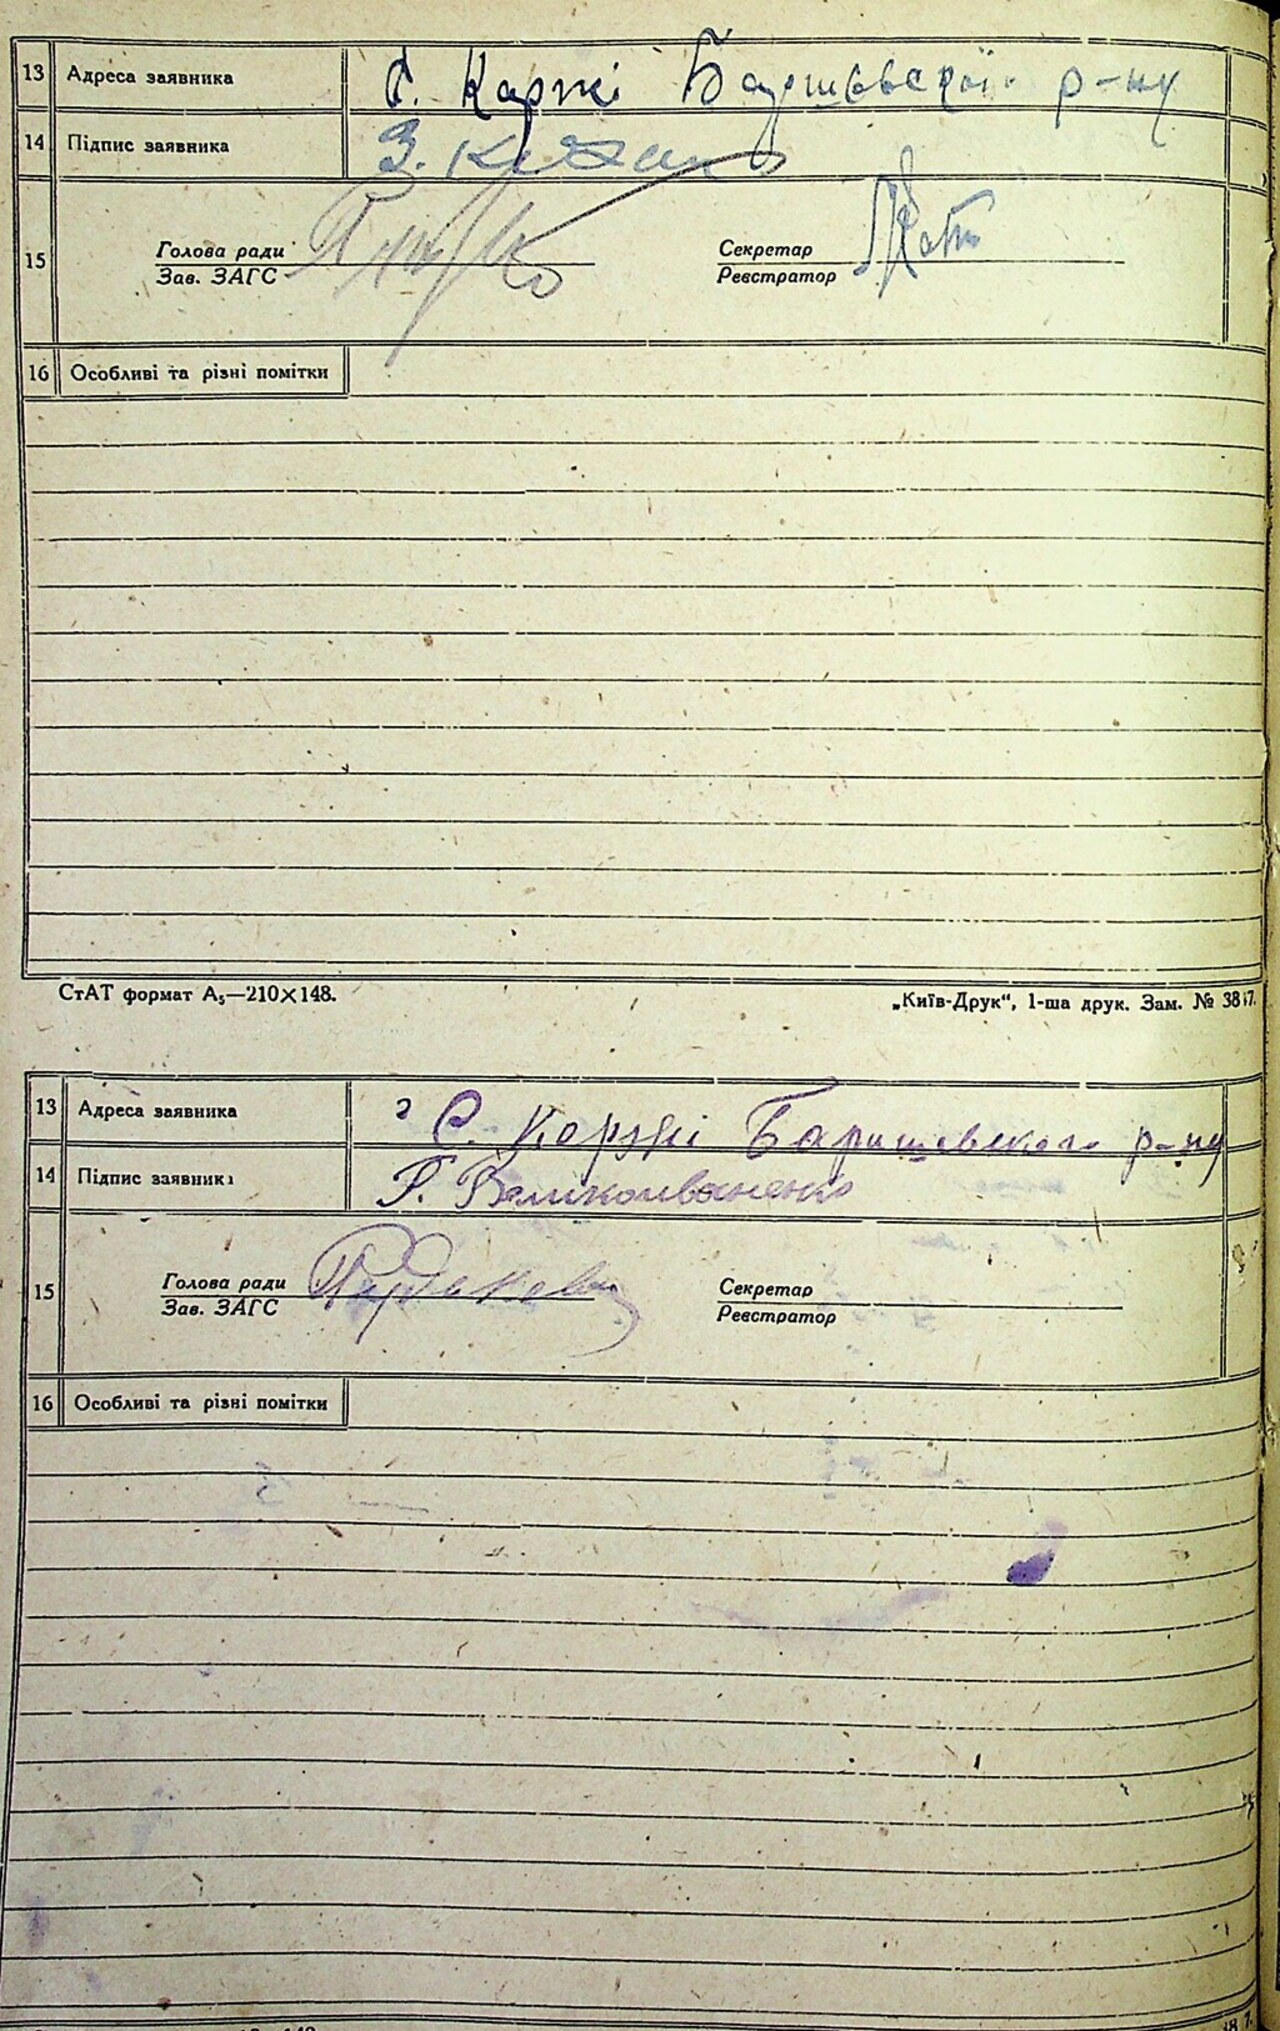 13 Адреса заявника С. Коржі Баришевскої р-ну
14 Підпис заявника З.
15 Голова ради Секретар
Зав. ЗАГС Реєстратор
16 Особливі та різні помітки
СтАТ формат А₅—210×148. „Київ-Друк“, 1-ша друк. Зам. № 3817.
13 Адреса заявника С. Коржі Баришевского р-ну
14 Підпис заявника Г. Великоиваненко
15 Голова ради Секретар
Зав. ЗАГС Реєстратор
16 Особливі та різні помітки